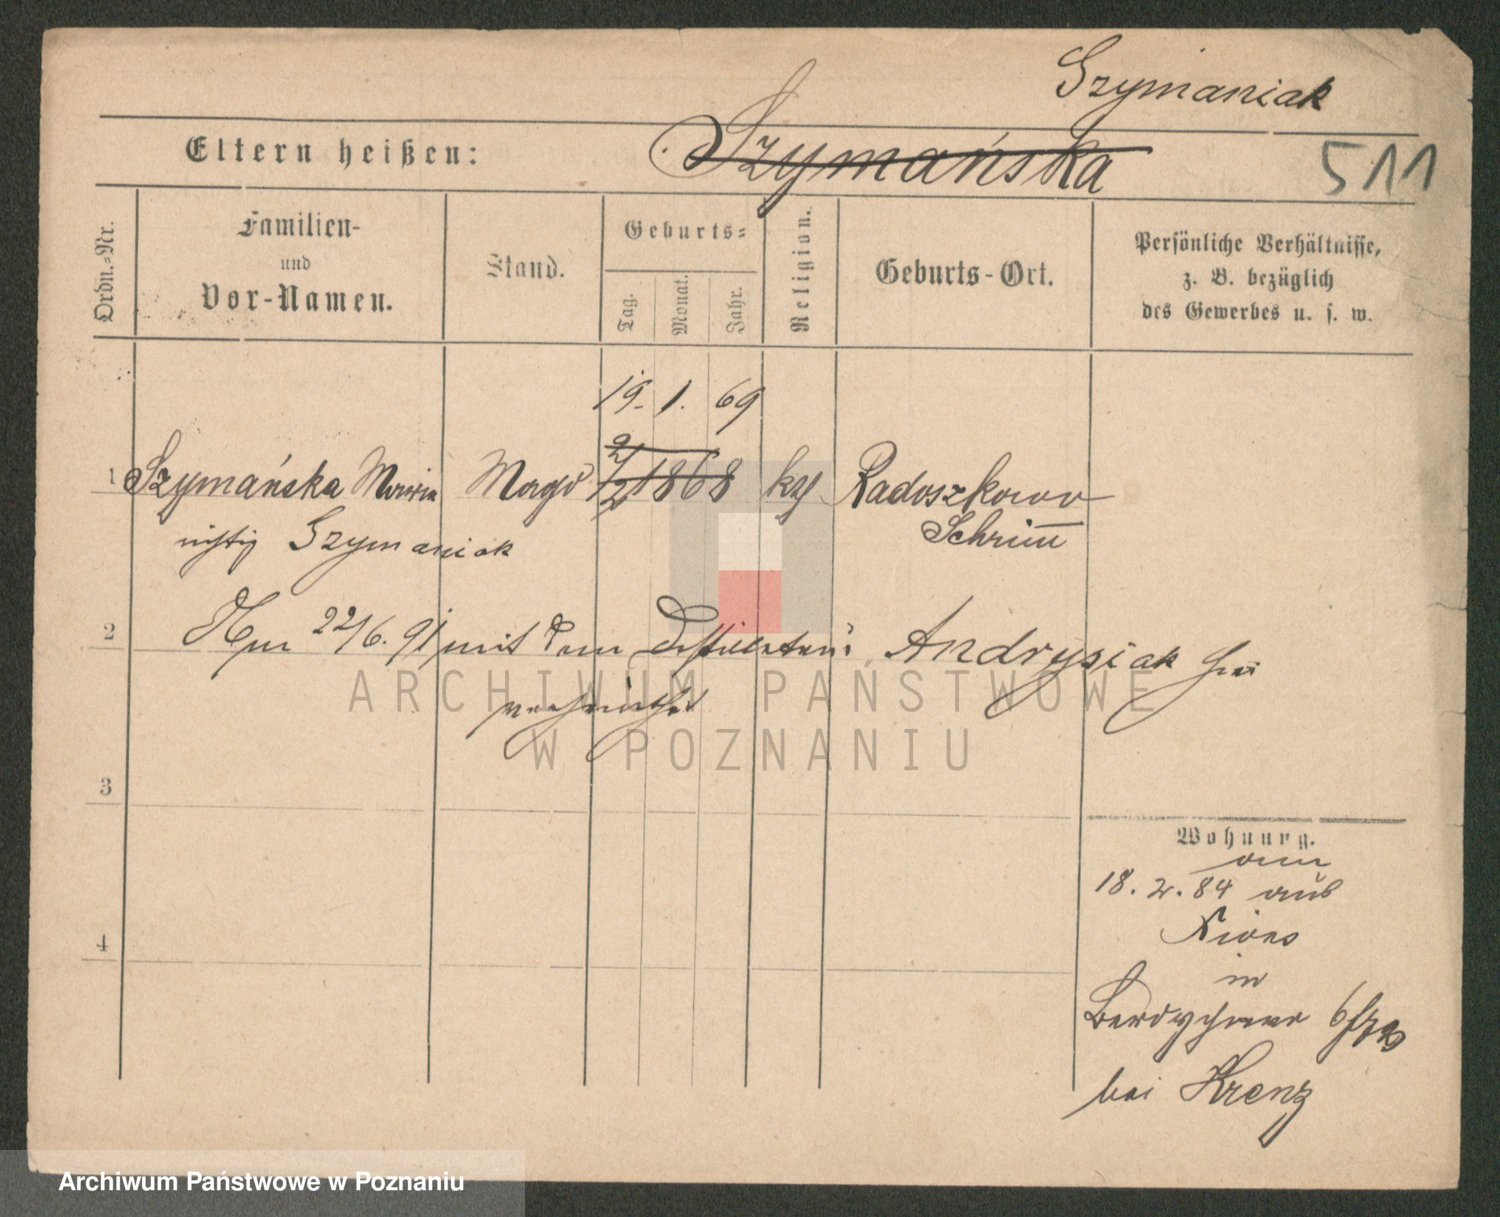 Szymaniak
Eltern heißen: Szymańska
511
Ordn.-Nr.
Familien-
und
Vor-Namen.
Stand.
Geburts-
Tag.
Monat.
Jahr.
Religion.
Geburts-Ort.
Persönliche Verhältnisse,
z. B. bezüglich
des Gewerbes u. s. w.
19. 1. 69
1 Szymańska Maria Magd 1868 kg Radoszkowo
Schrimm
richtig Szymaniak
2 Am 22/6. 91 mit dem Destillateur Andrysiak hier
verheirathet
3
Wohnung.
am
18. 2. 84 aus
Xions
in
4
Berdychowo
bei Krenz
ARCHIWUM PAŃSTWOWE
W POZNANIU
Archiwum Państwowe w Poznaniu